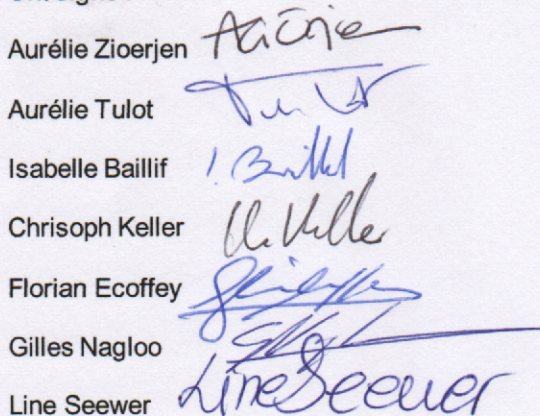 Aurélie Zioerjen
Aurélie Tulot
Isabelle Baillif I. Baillif
Chrisoph Keller Ch. Keller
Florian Ecoffey
Gilles Nagloo
Line Seewer Line Seewer